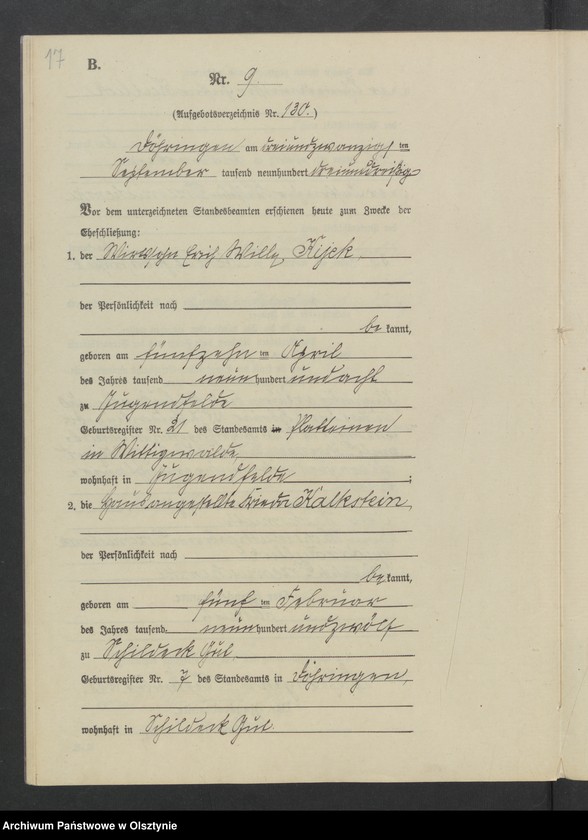 17
B.
Nr. 9.
(Aufgebotsverzeichnis Nr. 130.)
Döhringen am dreiundzwanzigsten
September tausend neunhundert dreiunddreißig
Vor dem unterzeichneten Standesbeamten erschienen heute zum Zwecke der
Eheschließung:
1. der Wirtssohn Erich Willy Kijek
der Persönlichkeit nach
be kannt,
geboren am fünfzehn ten April
des Jahres tausend neunhundert undacht
zu Jugendfelde
Geburtsregister Nr. 21 des Standesamts in Platteinen
in Wittigwalde
wohnhaft in Jugendfelde ;
2. die Hausangestellte Frieda Kalkstein,
der Persönlichkeit nach
be kannt,
geboren am fünf ten Februar
des Jahres tausend neunhundert undzwölf
zu Schildeck Gut
Geburtsregister Nr. 7 des Standesamts in Döhringen,
wohnhaft in Schildeck Gut
Archiwum Państwowe w Olsztynie